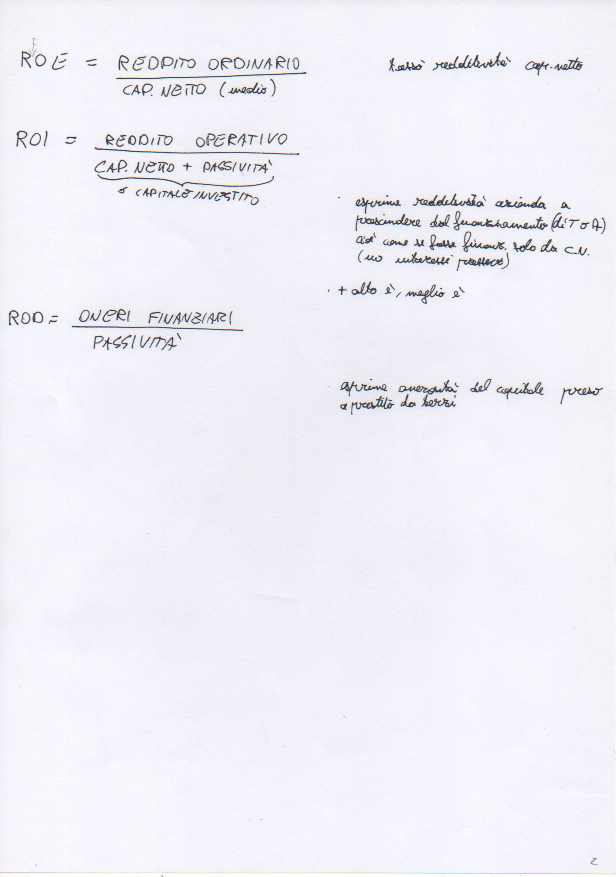 ROE = REDDITO ORDINARIO
CAP. NETTO (medio)
tasso redditività cap. netto
ROI = REDDITO OPERATIVO
CAP. NETTO + PASSIVITÀ
o CAPITALE INVESTITO
· esprime redditività azienda a
prescindere dal finanziamento (di T o A)
così come se fosse finanz. solo da C.N.
(no interessi passivi)
· + alto è, meglio è
ROD = ONERI FINANZIARI
PASSIVITÀ
esprime onerosità del capitale preso
a prestito da terzi
2